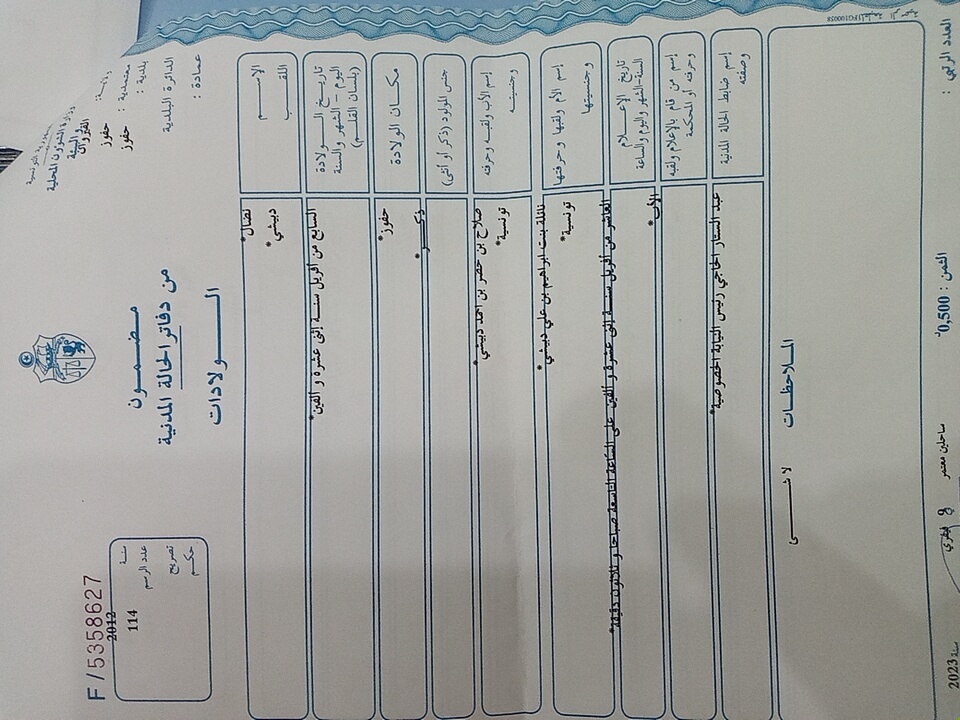 F/5358627
سنة 2012
عدد الرسم 114
تصريح
حكم
وزارة الشؤون المحلية
والبيئة
القيروان
معتمدية : حفوز
بلدية : حفوز
الدائرة البلدية
عمادة :
مضمون
من دفاتر الحالة المدنية
الولادات
الإسم
اللقب
نضال*
دبيشي*
تاريخ الولادة
اليوم - الشهر والسنة
(بلسان القلم)
السابع من أفريل سنة إثنى عشرة و ألفين*
مكان الولادة
حفوز*
جنس المولود (ذكر أو أنثى)
ذكر*
إسم الأب ولقبه وحرفته
وجنسيته
صلاح بن خضر بن احمد دبيشي*
تونسية*
إسم الأم ولقبها وحرفتها
وجنسيتها
نائلة بنت ابراهيم بن علي دبيشي*
تونسية*
تاريخ الإعلام
السنة-الشهر واليوم والساعة
العاشر من أفريل سنة إثنى عشرة و ألفين على الساعة التاسعة صباحا و ثلاثون دقيقة*
إسم من قام بالإعلام ولقبه
وحرفته أو المحكمة
الأب*
إسم ضابط الحالة المدنية
وصفته
عبد الستار الحاجي رئيس النيابة الخصوصية*
الملاحظات
لا شيء
العدد الرتبي :
الثمن : 0,500د
في
سنة 2023